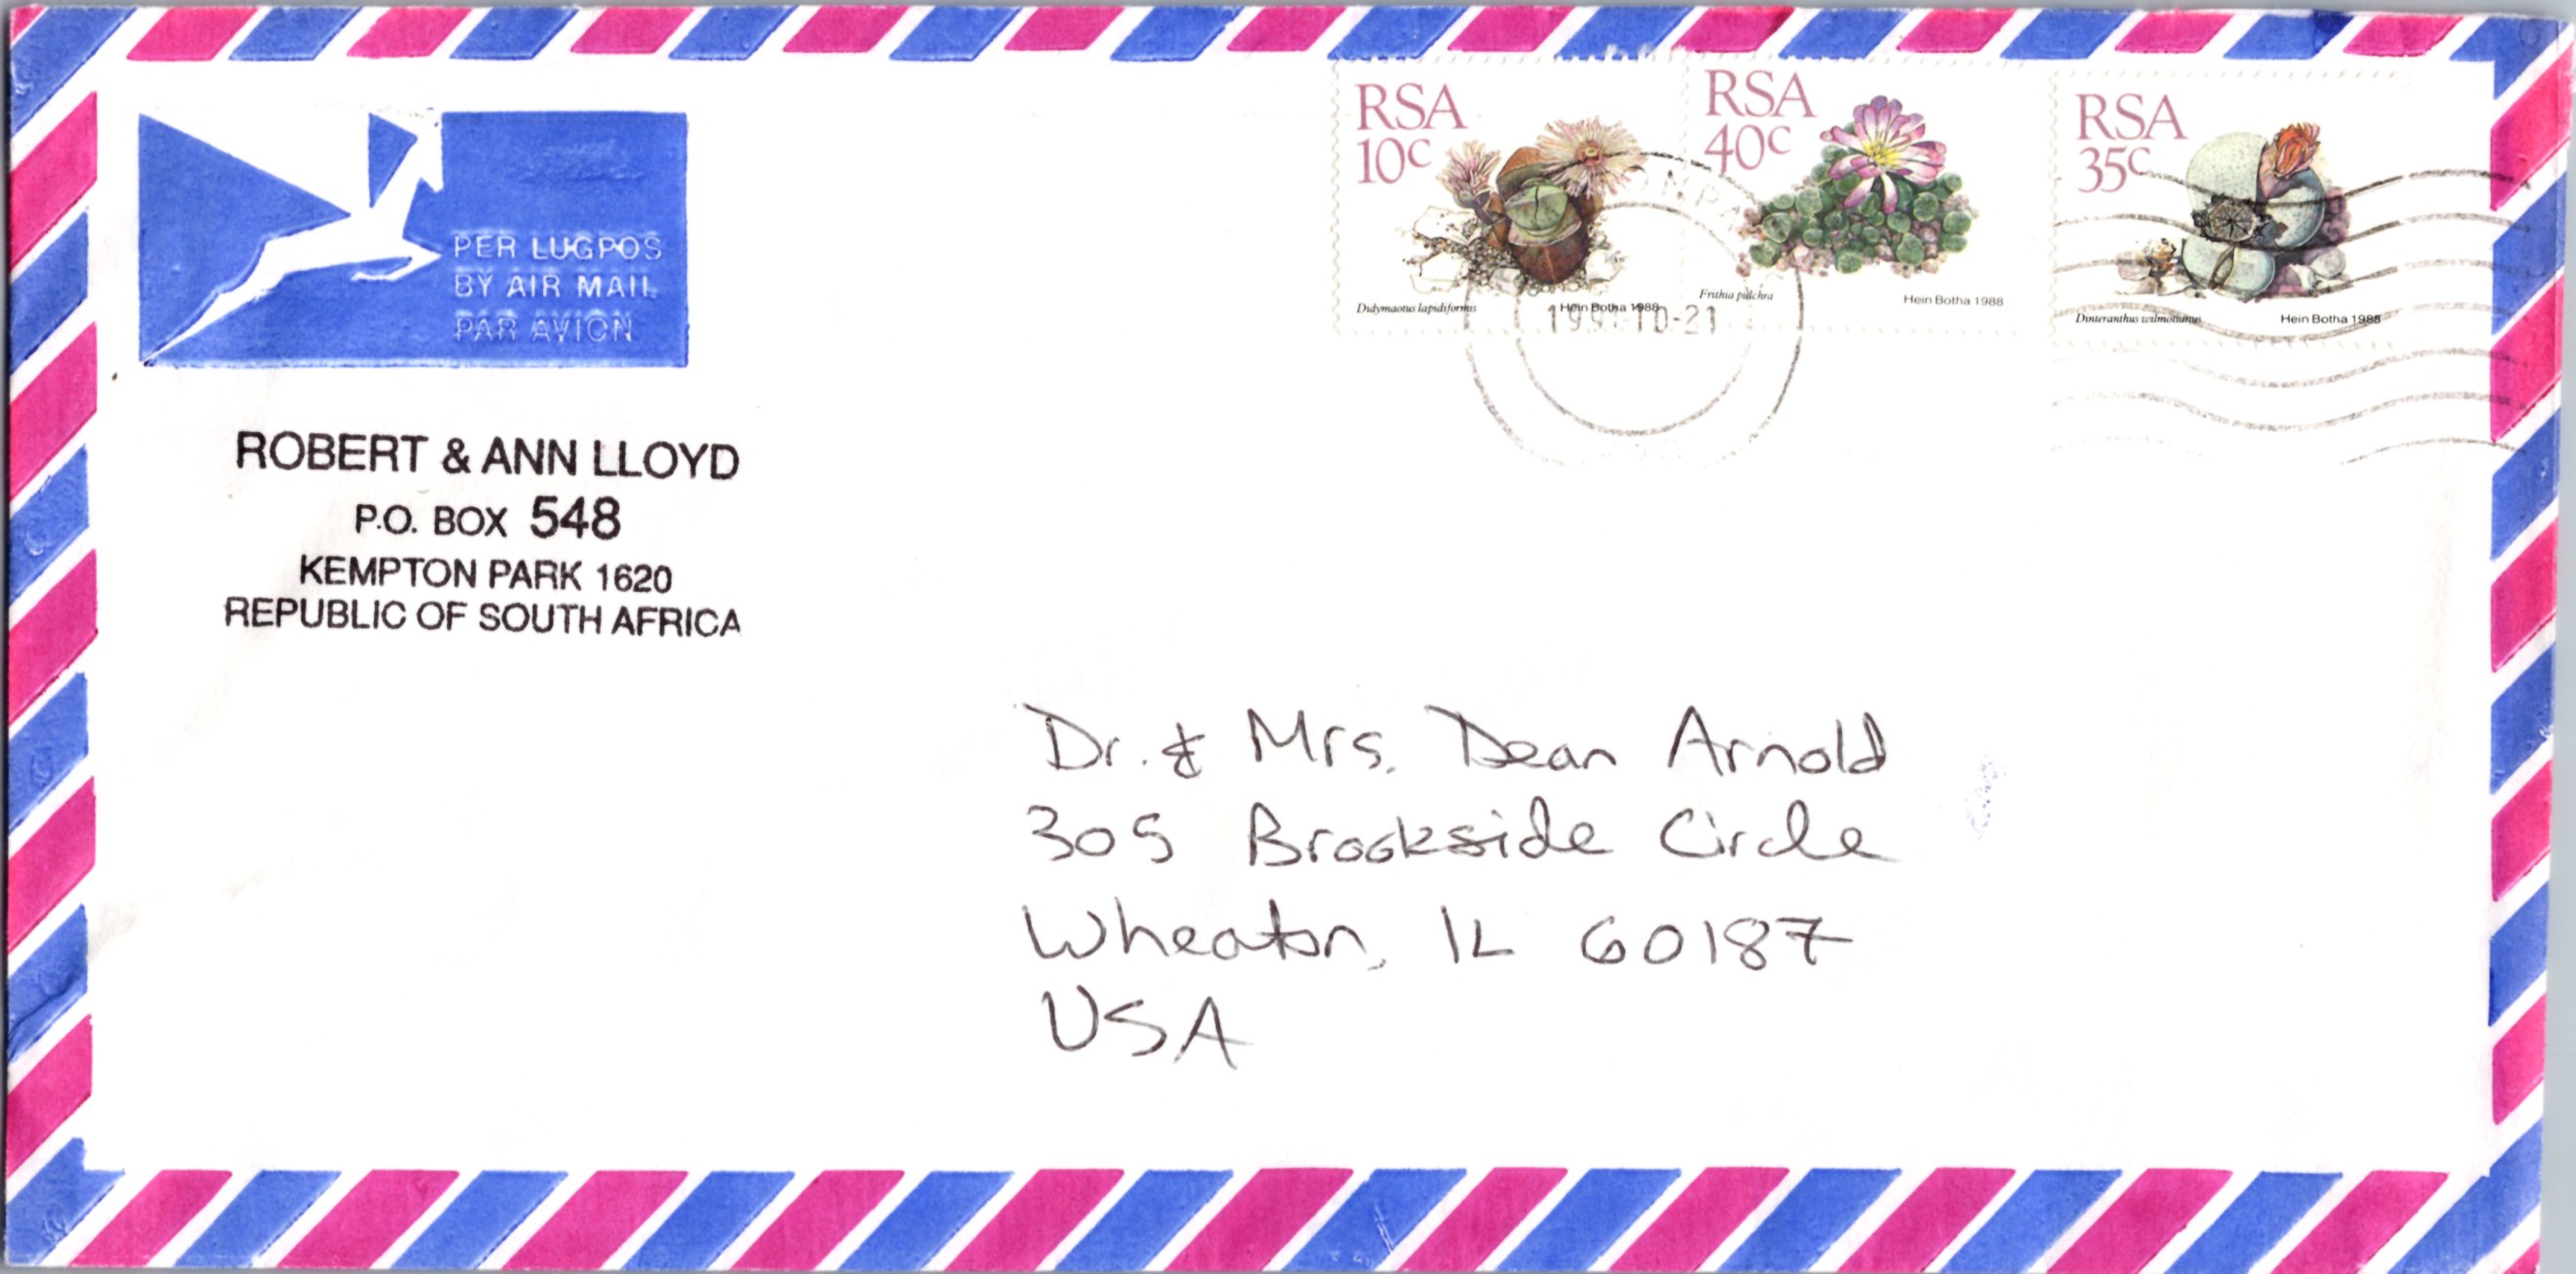 PER LUGPOS
BY AIR MAIL
PAR AVION
ROBERT & ANN LLOYD
P.O. BOX 548
KEMPTON PARK 1620
REPUBLIC OF SOUTH AFRICA
RSA
10c
Didymaotus lapidiformis
Hein Botha 1988
RSA
40c
Frithia pulchra
Hein Botha 1988
RSA
35c
Dinteranthus wilmotianus
Hein Botha 1988
Dr. & Mrs. Dean Arnold
305 Brookside Circle
Wheaton, IL 60187
USA